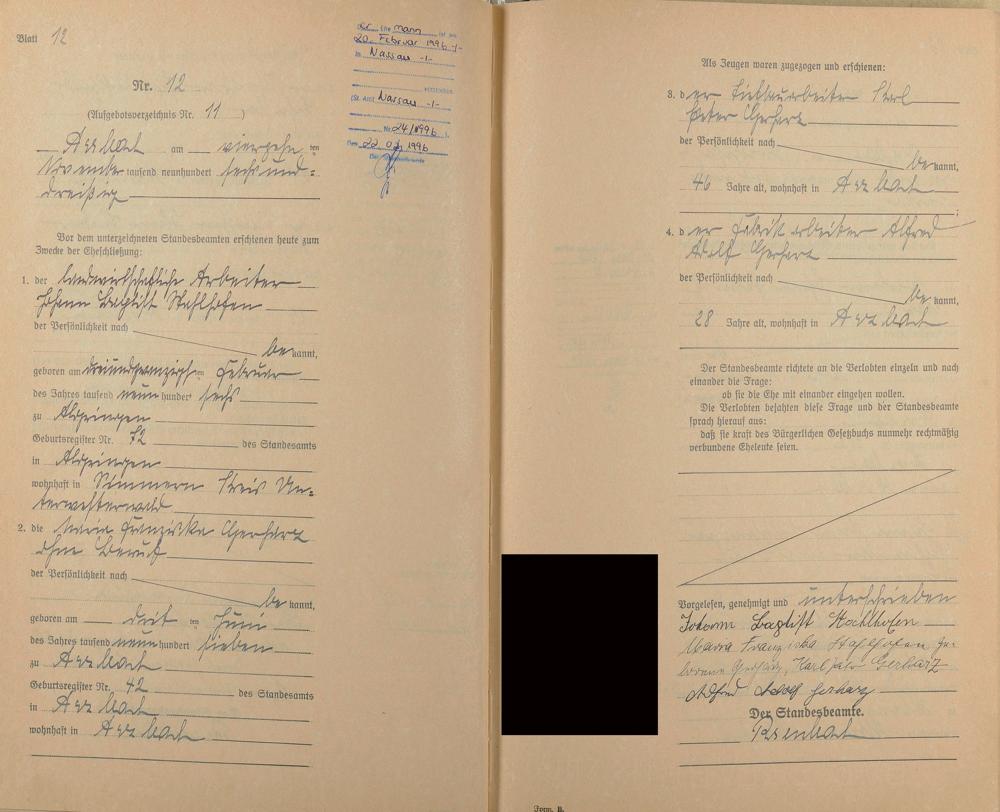 Blatt 12
Nr. 12
(Aufgebotsverzeichnis Nr. 11)
Arzbach am vierzehnten
November tausend neunhundert sechsund=
dreißig
Vor dem unterzeichneten Standesbeamten erschienen heute zum
Zwecke der Eheschließung:
1. der landwirtschaftliche Arbeiter
Johann Baptist Stahlhofen
der Persönlichkeit nach
bekannt,
geboren am dreiundzwanzigsten Februar
des Jahres tausend neunhundert sechs
zu
Geburtsregister Nr. 72 des Standesamts
in
wohnhaft in Simmern Kreis Un=
terwesterwald
2. die Maria Franziska Gerharz
ohne Beruf
der Persönlichkeit nach
bekannt,
geboren am dritten Juni
des Jahres tausend neunhundert sieben
zu Arzbach
Geburtsregister Nr. 42 des Standesamts
in Arzbach
wohnhaft in Arzbach
Ehemann ist am
20. Februar 1996 -/-
in Nassau -/-
verstorben
(St. Amt Nassau -/-
Nr. 24/1996 ).
Den 22.02.1996
Der Standesbeamte
Als Zeugen waren zugezogen und erschienen:
3. der Tiefbauarbeiter Karl
Peter Gerharz
der Persönlichkeit nach
bekannt,
46 Jahre alt, wohnhaft in Arzbach
;
4. der Fabrikarbeiter Alfred
Adolf Gerharz
der Persönlichkeit nach
bekannt,
28 Jahre alt, wohnhaft in Arzbach
Der Standesbeamte richtete an die Verlobten einzeln und nach
einander die Frage:
ob sie die Ehe mit einander eingehen wollen.
Die Verlobten bejahten diese Frage und der Standesbeamte
sprach hierauf aus:
daß sie kraft des Bürgerlichen Gesetzbuchs nunmehr rechtmäßig
verbundene Eheleute seien.
Vorgelesen, genehmigt und unterschrieben
Johann Baptist Stahlhofen
Maria Franziska Stahlhofen ge-
borene Gerharz, Karl Peter Gerharz
Alfred Adolf Gerharz
Der Standesbeamte.
Form. B.